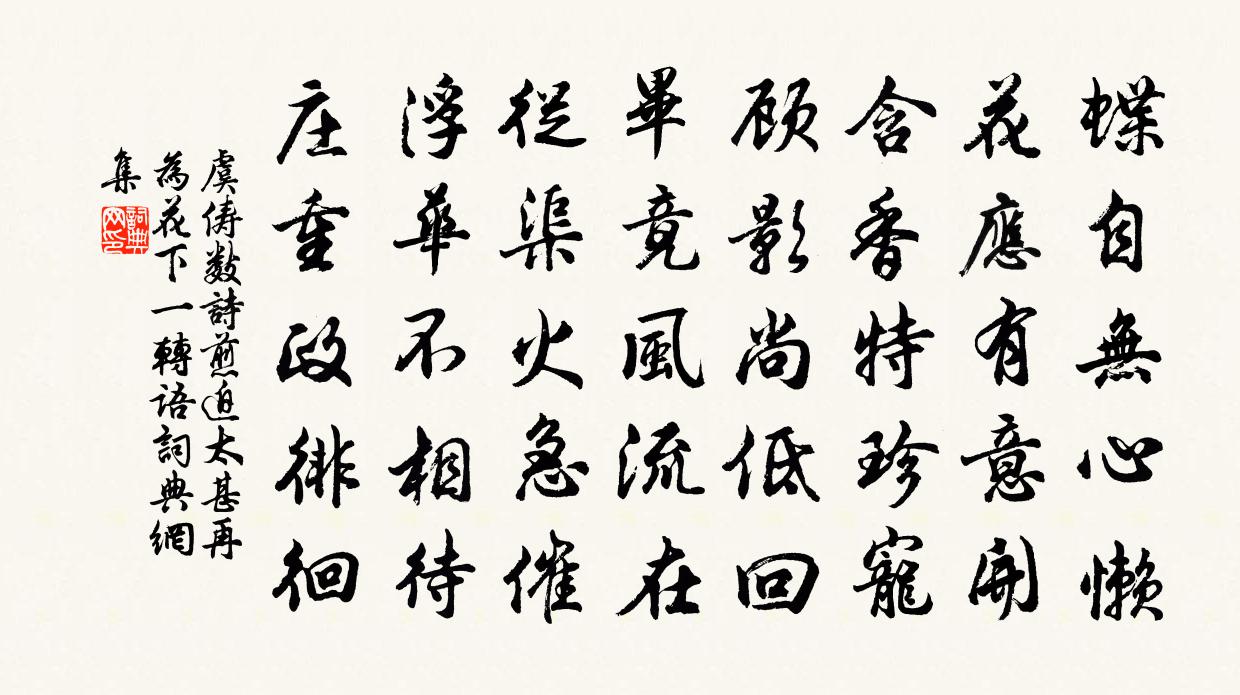 蝶自無心懒
花應有意開
含香特珍寵
顾影尚低回
畢竟風流在
從渠火急催
浮華不相待
庄重政徘徊
虞俦数詩煎迫太甚再
為花下一轉语詞典網
集
詞典
网印